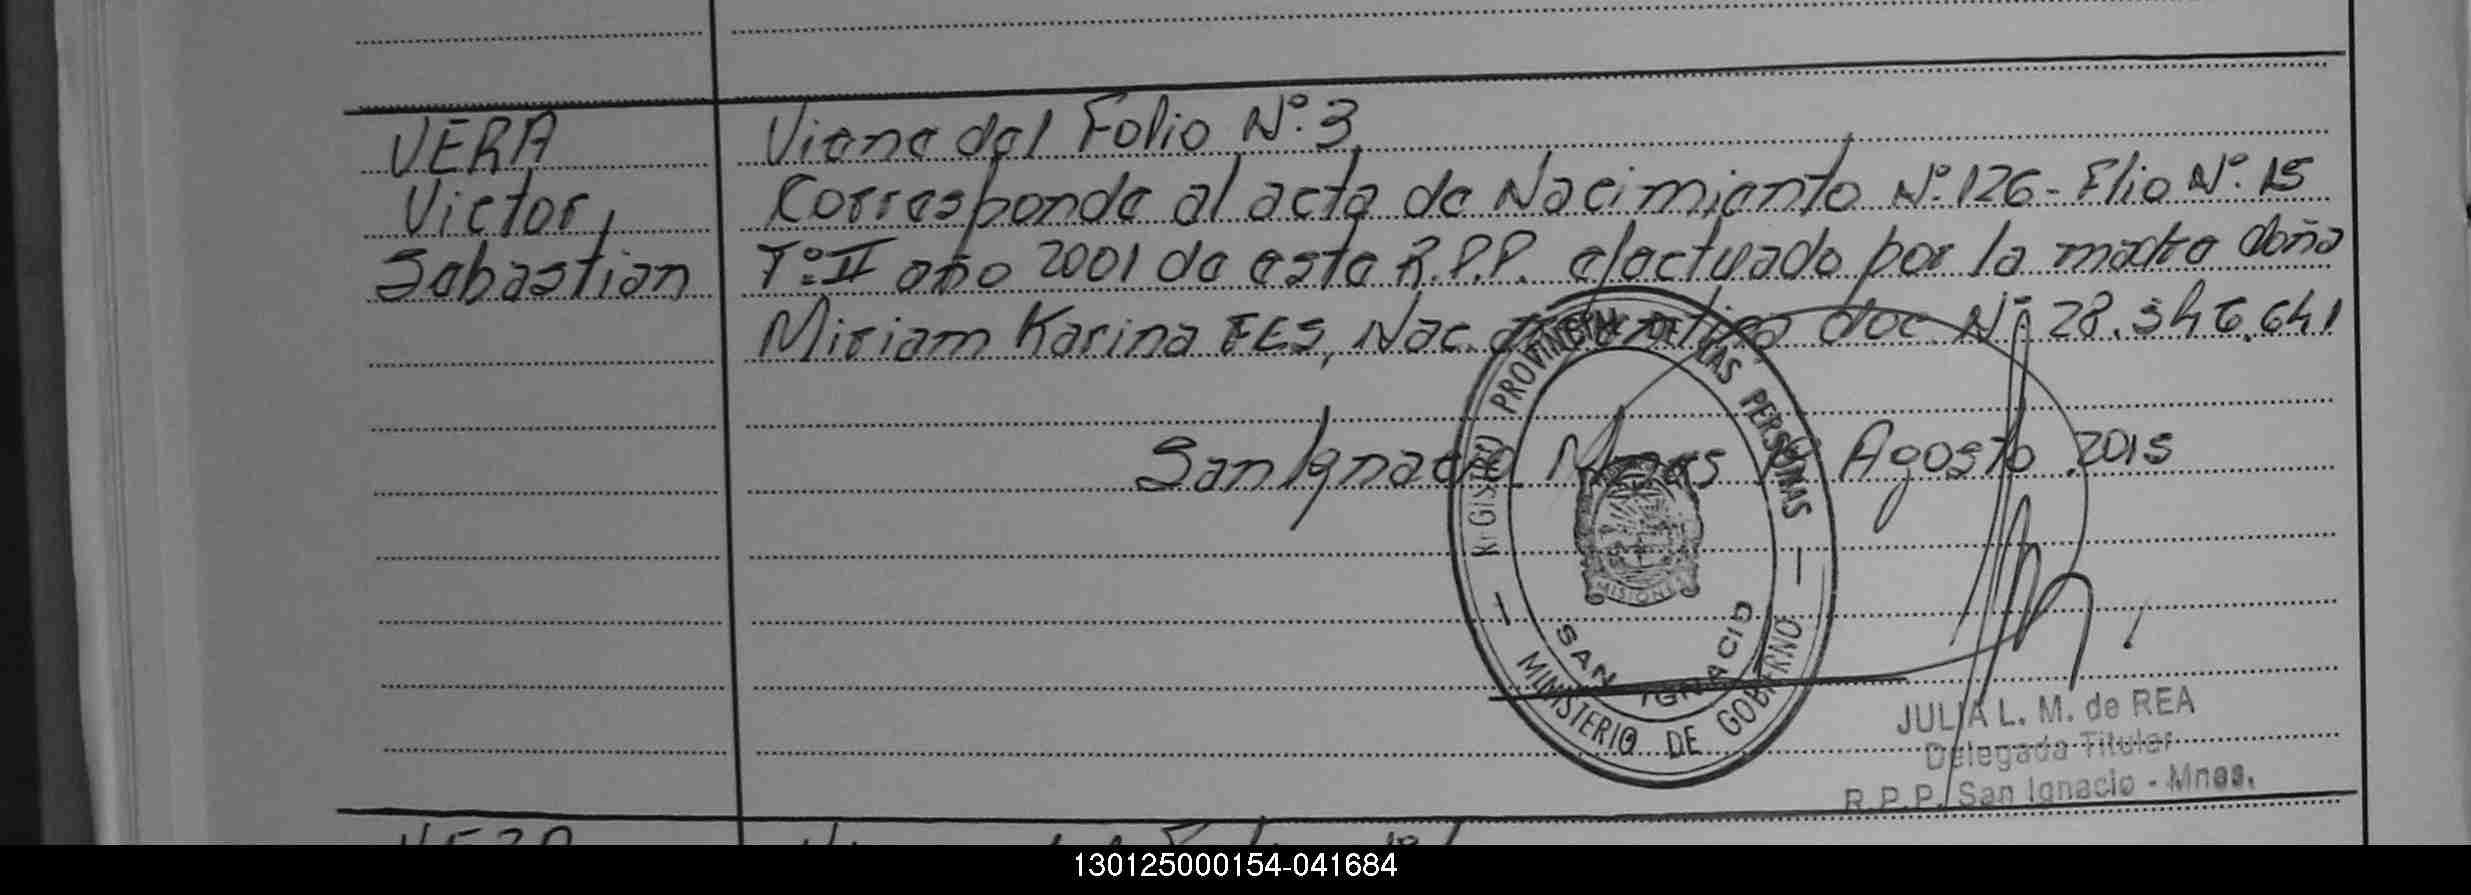 VERA
Victor
Sebastian
Viene del Folio Nº.3
Corresponde al acta de Nacimiento Nº.126 - Flio Nº.15
Tº:II año 2001 de este R.P.P. efectuado por la madre doña
Miriam Karina FES, Nac. argentina doc. Nº 28.346.641
San Ignacio Mnes Agosto 2015
REGISTRO PROVINCIAL DE LAS PERSONAS
MISIONES
SAN IGNACIO
MINISTERIO DE GOBIERNO
JULIA L. M. de REA
Delegada Titular
R.P.P. San Ignacio - Mnes.
130125000154-041684